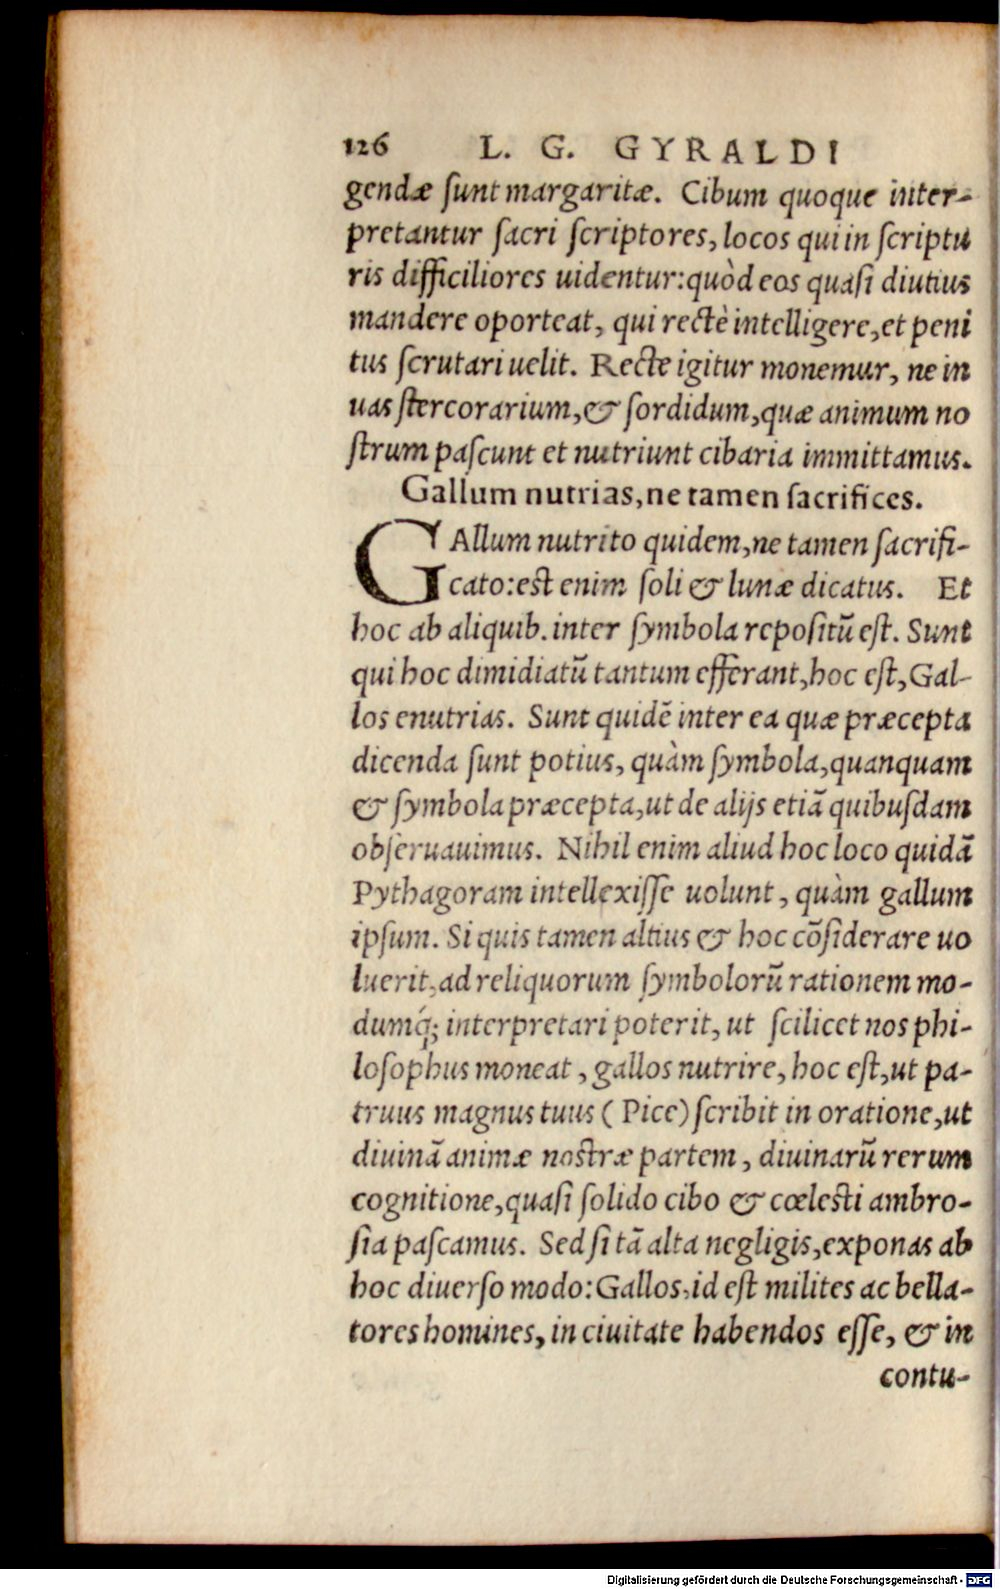 126 L. G. GYRALDI
gendæ ſunt margaritæ. Cibum quoque inter-
pretantur ſacri ſcriptores, locos qui in ſcriptu
ris difficiliores uidentur: quòd eos quaſi diutius
mandere oporteat, qui rectè intelligere, et peni
tus ſcrutari uelit. Recte igitur monemur, ne in
uas ſtercorarium, & ſordidum, quæ animum no
ſtrum paſcunt et nutriunt cibaria immittamus.
Gallum nutrias, ne tamen ſacrifices.
GAllum nutrito quidem, ne tamen ſacrifi-
cato: eſt enim ſoli & lunæ dicatus. Et
hoc ab aliquib. inter ſymbola repoſitũ eſt. Sunt
qui hoc dimidiatũ tantum efferant, hoc eſt, Gal-
los enutrias. Sunt quidẽ inter ea quæ præcepta
dicenda ſunt potius, quàm ſymbola, quanquam
& ſymbola præcepta, ut de alijs etiã quibuſdam
obſeruauimus. Nihil enim aliud hoc loco quidã
Pythagoram intellexiſſe uolunt, quàm gallum
ipſum. Si quis tamen altius & hoc cõſiderare uo
luerit, ad reliquorum ſymbolorũ rationem mo-
dumq́; interpretari poterit, ut ſcilicet nos phi-
loſophus moneat, gallos nutrire, hoc eſt, ut pa-
truus magnus tuus (Pice) ſcribit in oratione, ut
diuinã animæ noſtræ partem, diuinarũ rerum
cognitione, quaſi ſolido cibo & cœleſti ambro-
ſia paſcamus. Sed ſi tã alta negligis, exponas ab
hoc diuerſo modo: Gallos, id eſt milites ac bella-
tores homines, in ciuitate habendos eſſe, & in
contu-
Digitalisierung gefördert durch die Deutsche Forschungsgemeinschaft - DFG